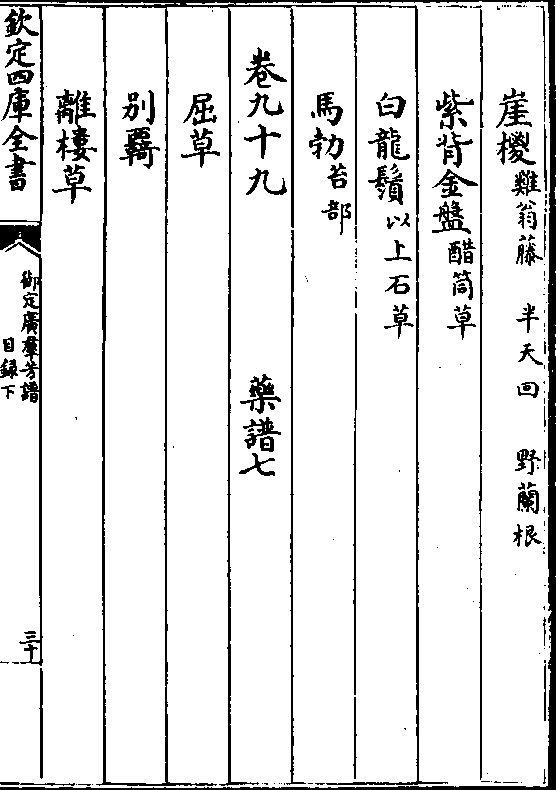 崖㮨雞翁藤　半天回　野蘭根
紫背金盤醋筒草
白龍鬚以上石草
馬勃苔部
卷九十九　藥譜七
屈草
別覊
離樓草
欽定四庫全書　御定廣羣芳譜目録下　三十